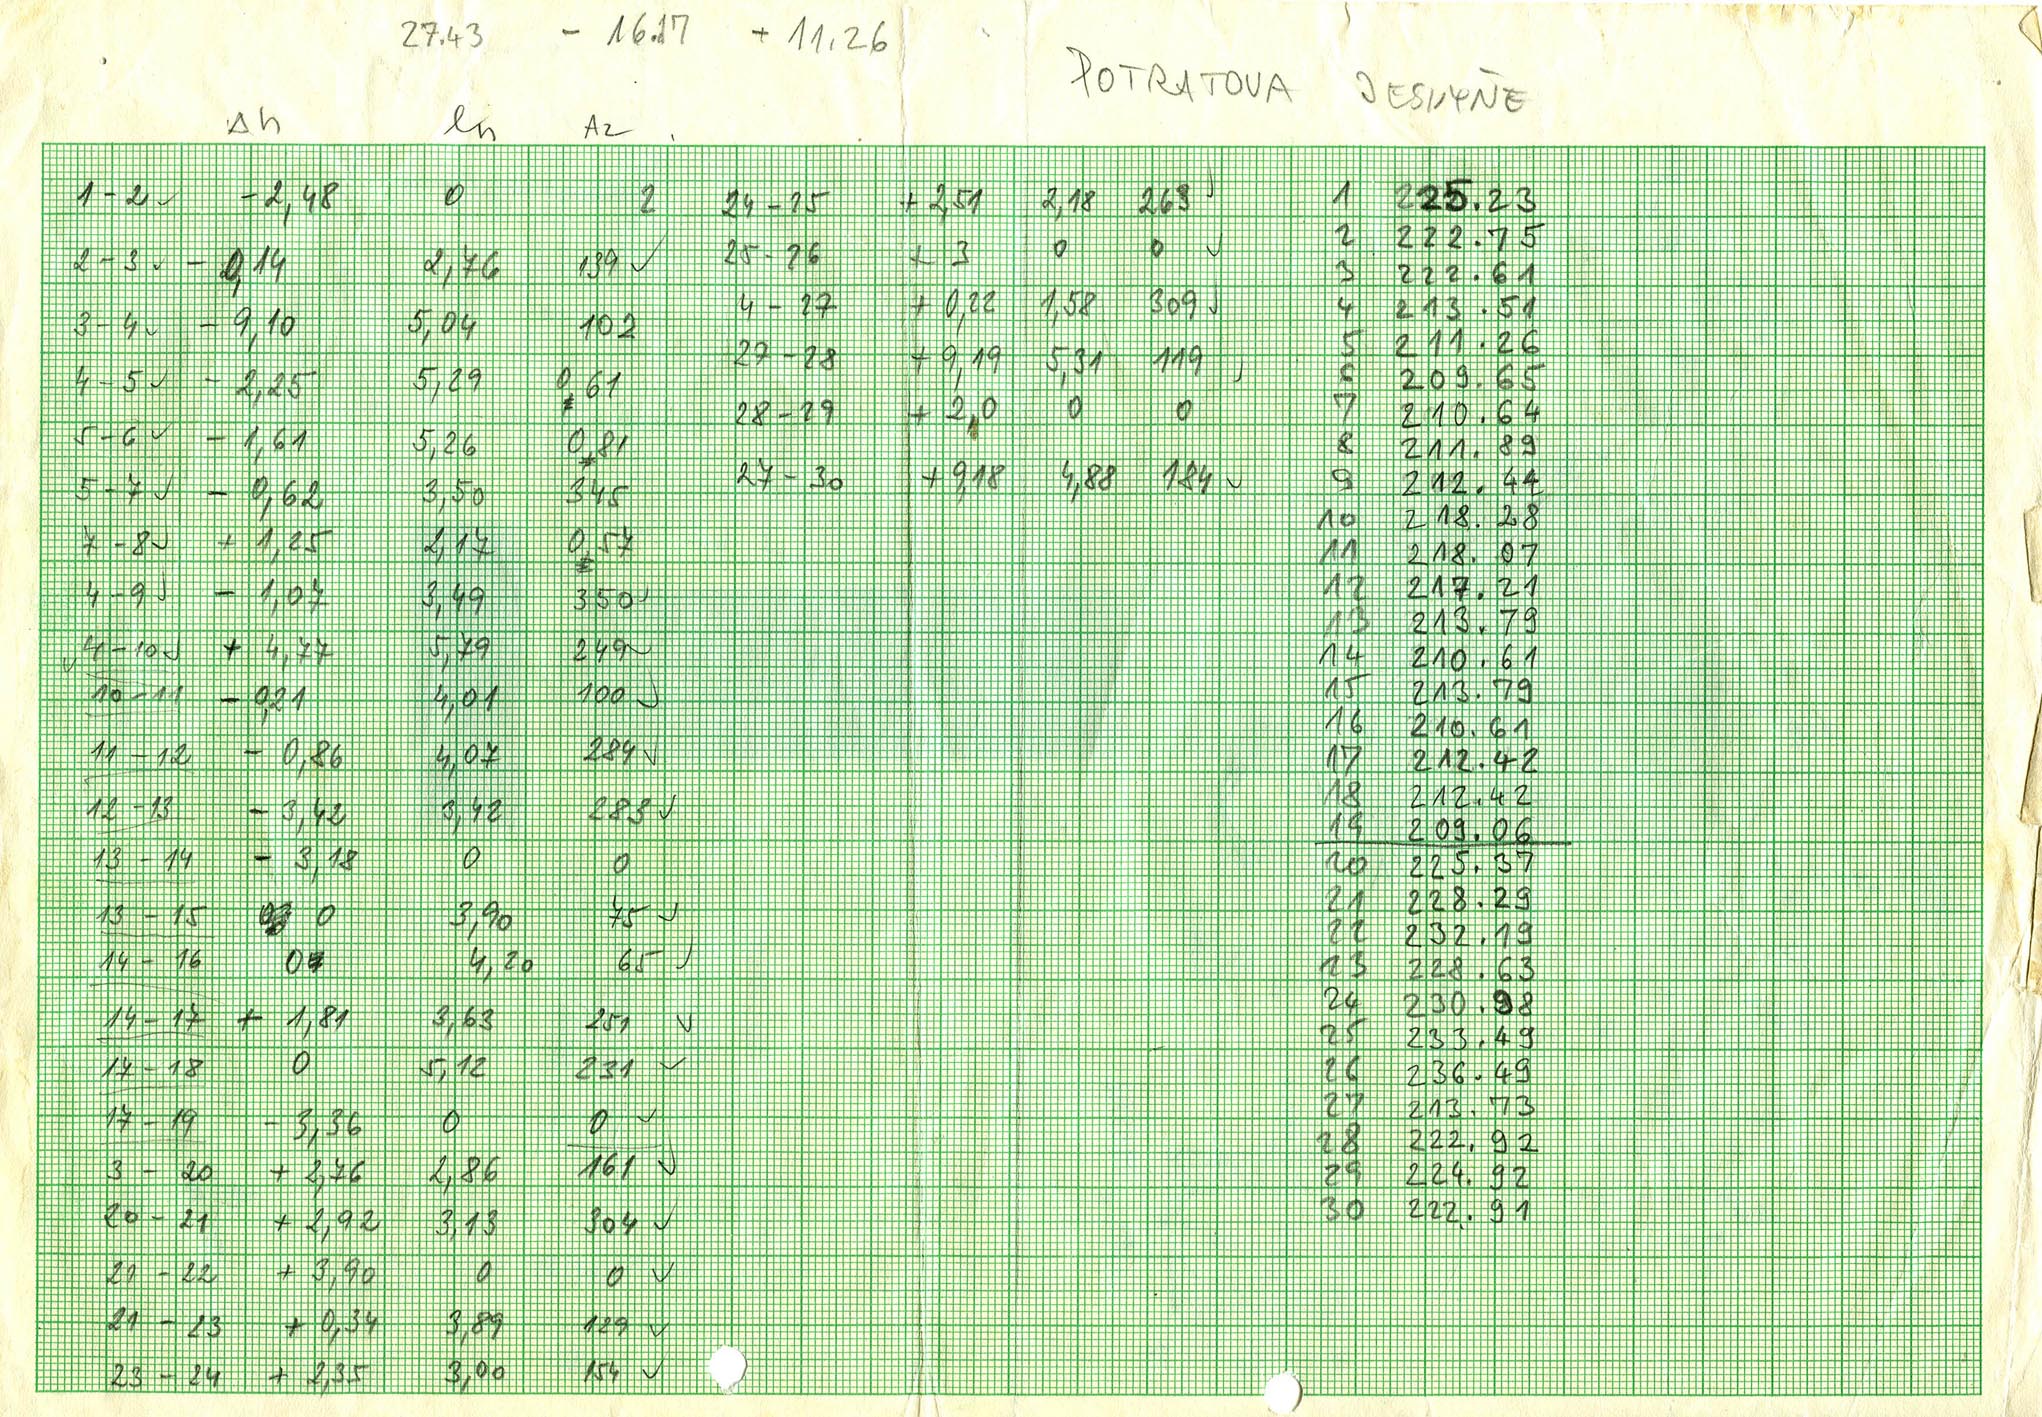 27.43 - 16.17 + 11.26
POTRATOVA JESKYŇE
Δh lh Az
1-2 -2,48 0 2
2-3 -0,14 2,76 139
3-4 -9,10 5,04 102
4-5 -2,25 5,29 0,61
5-6 -1,61 5,26 0,81
5-7 -0,62 3,50 345
7-8 +1,25 2,17 0,57
4-9 -1,07 3,49 350
4-10 +4,77 5,79 249
10-11 -0,21 4,01 100
11-12 -0,86 4,07 284
12-13 -3,42 3,42 283
13-14 -3,18 0 0
13-15 0 3,90 75
14-16 0 4,20 65
14-17 +1,81 3,63 251
17-18 0 5,12 231
17-19 -3,36 0 0
3-20 +2,76 2,86 161
20-21 +2,92 3,13 304
21-22 +3,90 0 0
21-23 +0,34 3,89 129
23-24 +2,35 3,00 154
24-25 +2,51 2,18 263
25-26 +3 0 0
4-27 +0,22 1,58 309
27-28 +9,19 5,31 119
28-29 +2,0 0 0
27-30 +9,18 4,88 184
1 225.23
2 222.75
3 222.61
4 213.51
5 211.26
6 209.65
7 210.64
8 211.89
9 212.44
10 218.28
11 218.07
12 217.21
13 213.79
14 210.61
15 213.79
16 210.61
17 212.42
18 212.42
19 209.06
20 225.37
21 228.29
22 232.19
23 228.63
24 230.98
25 233.49
26 236.49
27 213.73
28 222.92
29 224.92
30 222.91